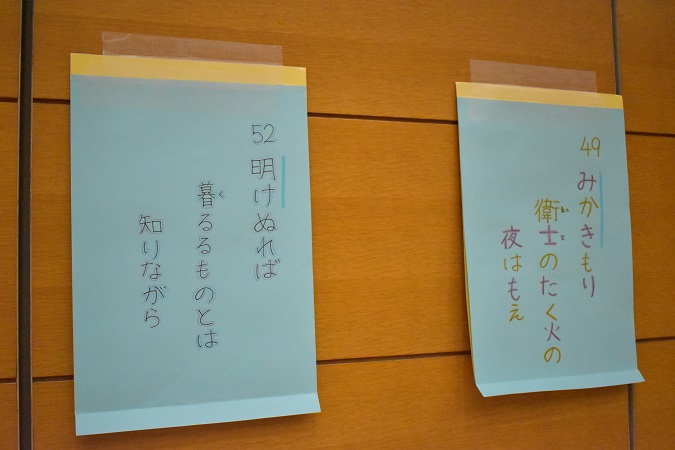 49 みかきもり
衛士のたく火の
夜はもえ
52 明けぬれば
く
暮るるものとは
知りながら